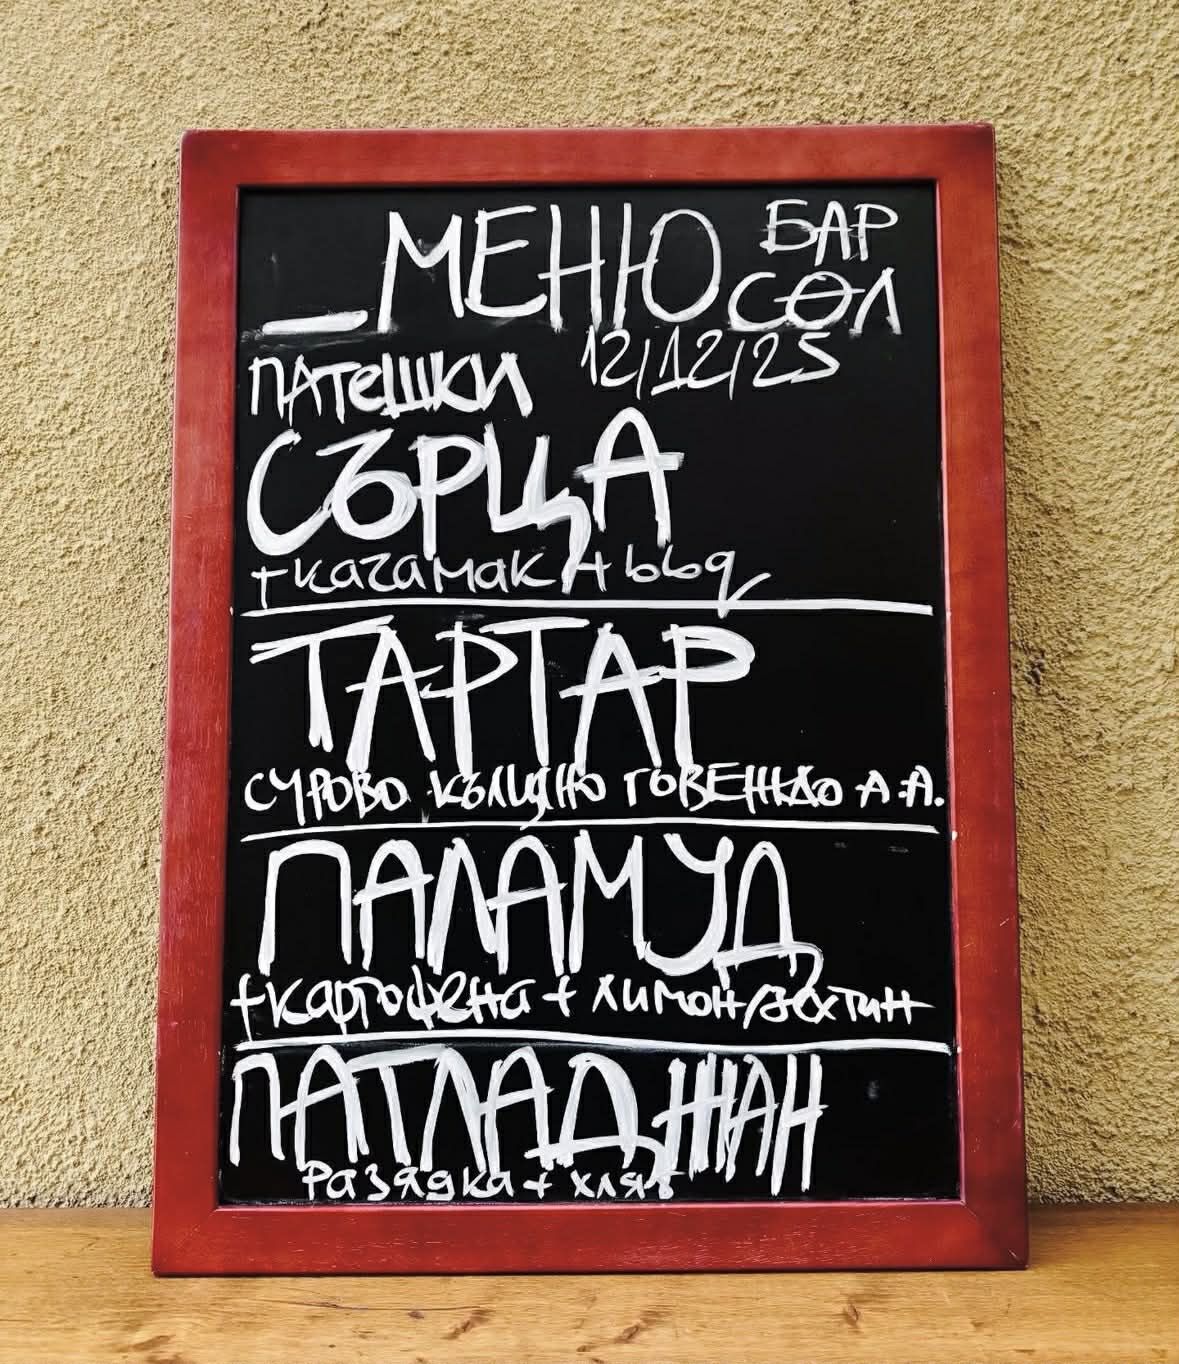 _МЕНЮ
БАР
СОЛ
12/12/25
ПАТЕШКИ
СЪРЦА
+ качамак + bbq
ТАРТАР
СУРОВО КЪЛЦАНО ГОВЕЖДО А.А.
ПАЛАМУД
+ картофена + лимон/зехтин
ПАТЛАДЖАН
Разядка + хляб